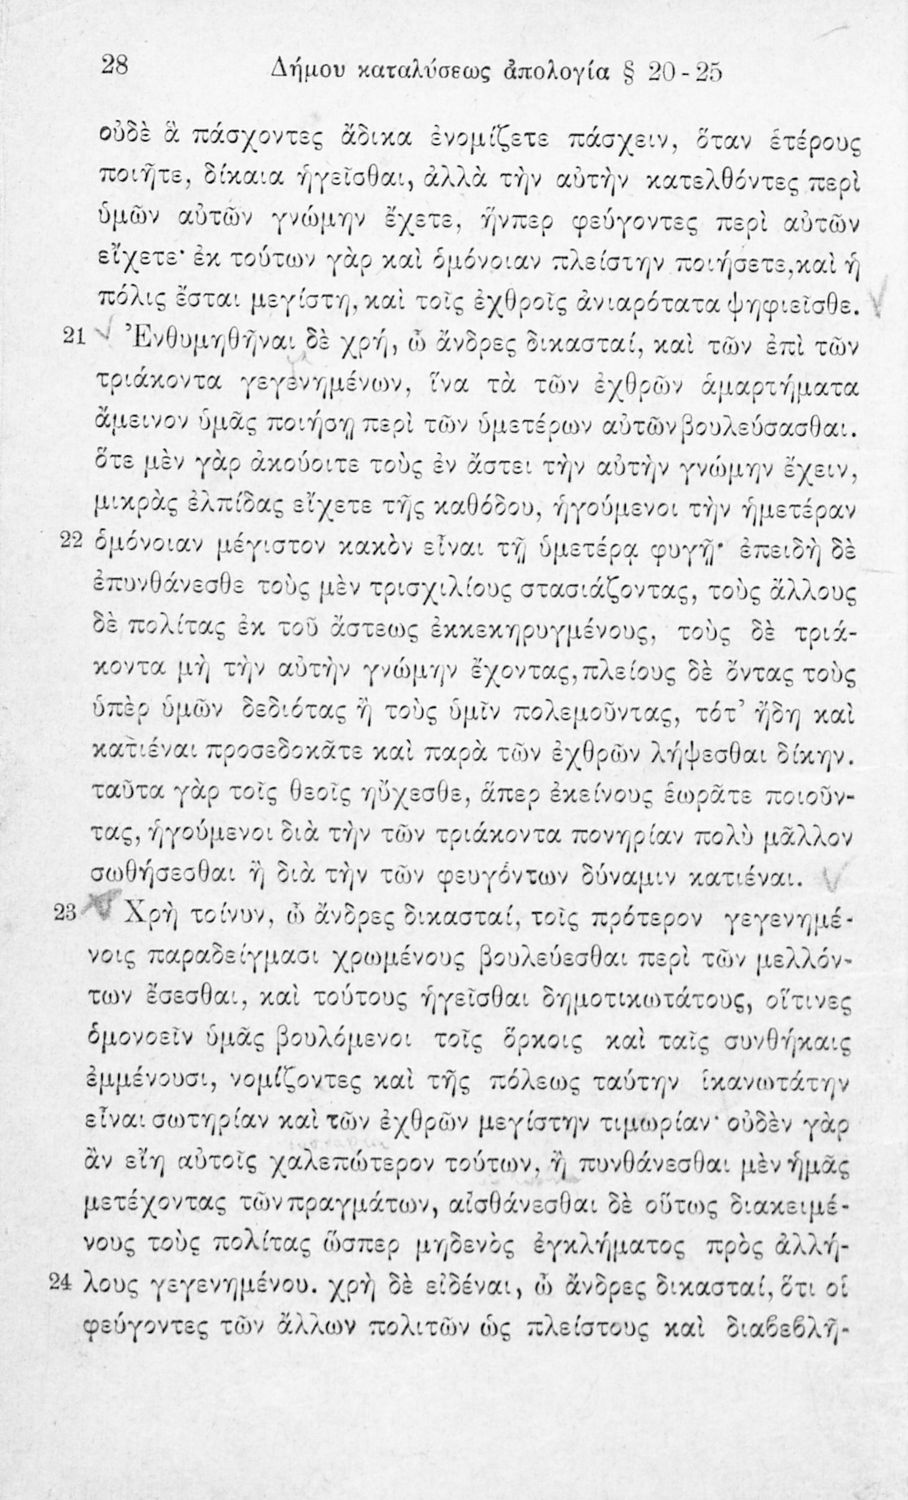 28 Δήμου καταλύσεως ἀπολογία § 20-25
οὐδὲ ἃ πάσχοντες ἄδικα ἐνομίζετε πάσχειν, ὅταν ἑτέρους
ποιῆτε, δίκαια ἡγεῖσθαι, ἀλλὰ τὴν αὐτὴν κατελθόντες περὶ
ὑμῶν αὐτῶν γνώμην ἔχετε, ἥνπερ φεύγοντες περὶ αὐτῶν
εἴχετε· ἐκ τούτων γὰρ καὶ ὁμόνοιαν πλείστην ποιήσετε, καὶ ἡ
πόλις ἔσται μεγίστη, καὶ τοῖς ἐχθροῖς ἀνιαρότατα ψηφιεῖσθε.
21 Ἐνθυμηθῆναι δὲ χρή, ὦ ἄνδρες δικασταί, καὶ τῶν ἐπὶ τῶν
τριάκοντα γεγενημένων, ἵνα τὰ τῶν ἐχθρῶν ἁμαρτήματα
ἄμεινον ὑμᾶς ποιήσῃ περὶ τῶν ὑμετέρων αὐτῶν βουλεύσασθαι.
ὅτε μὲν γὰρ ἀκούοιτε τοὺς ἐν ἄστει τὴν αὐτὴν γνώμην ἔχειν,
μικρὰς ἐλπίδας εἴχετε τῆς καθόδου, ἡγούμενοι τὴν ἡμετέραν
22 ὁμόνοιαν μέγιστον κακὸν εἶναι τῇ ὑμετέρᾳ φυγῇ· ἐπειδὴ δὲ
ἐπυνθάνεσθε τοὺς μὲν τρισχιλίους στασιάζοντας, τοὺς ἄλλους
δὲ πολίτας ἐκ τοῦ ἄστεως ἐκκεκηρυγμένους, τοὺς δὲ τριά-
κοντα μὴ τὴν αὐτὴν γνώμην ἔχοντας, πλείους δὲ ὄντας τοὺς
ὑπὲρ ὑμῶν δεδιότας ἢ τοὺς ὑμῖν πολεμοῦντας, τότ’ ἤδη καὶ
κατιέναι προσεδοκᾶτε καὶ παρὰ τῶν ἐχθρῶν λήψεσθαι δίκην.
ταῦτα γὰρ τοῖς θεοῖς ηὔχεσθε, ἅπερ ἐκείνους ἑωρᾶτε ποιοῦν-
τας, ἡγούμενοι διὰ τὴν τῶν τριάκοντα πονηρίαν πολὺ μᾶλλον
σωθήσεσθαι ἢ διὰ τὴν τῶν φευγόντων δύναμιν κατιέναι.
23 Χρὴ τοίνυν, ὦ ἄνδρες δικασταί, τοῖς πρότερον γεγενημέ-
νοις παραδείγμασι χρωμένους βουλεύεσθαι περὶ τῶν μελλόν-
των ἔσεσθαι, καὶ τούτους ἡγεῖσθαι δημοτικωτάτους, οἵτινες
ὁμονοεῖν ὑμᾶς βουλόμενοι τοῖς ὅρκοις καὶ ταῖς συνθήκαις
ἐμμένουσι, νομίζοντες καὶ τῆς πόλεως ταύτην ἱκανωτάτην
εἶναι σωτηρίαν καὶ τῶν ἐχθρῶν μεγίστην τιμωρίαν· οὐδὲν γὰρ
ἂν εἴη αὐτοῖς χαλεπώτερον τούτων, ἢ πυνθάνεσθαι μὲν ἡμᾶς
μετέχοντας τῶν πραγμάτων, αἰσθάνεσθαι δὲ οὕτως διακειμέ-
νους τοὺς πολίτας ὥσπερ μηδενὸς ἐγκλήματος πρὸς ἀλλή-
24 λους γεγενημένου. χρὴ δὲ εἰδέναι, ὦ ἄνδρες δικασταί, ὅτι οἱ
φεύγοντες τῶν ἄλλων πολιτῶν ὡς πλείστους καὶ διαβεβλῆ-